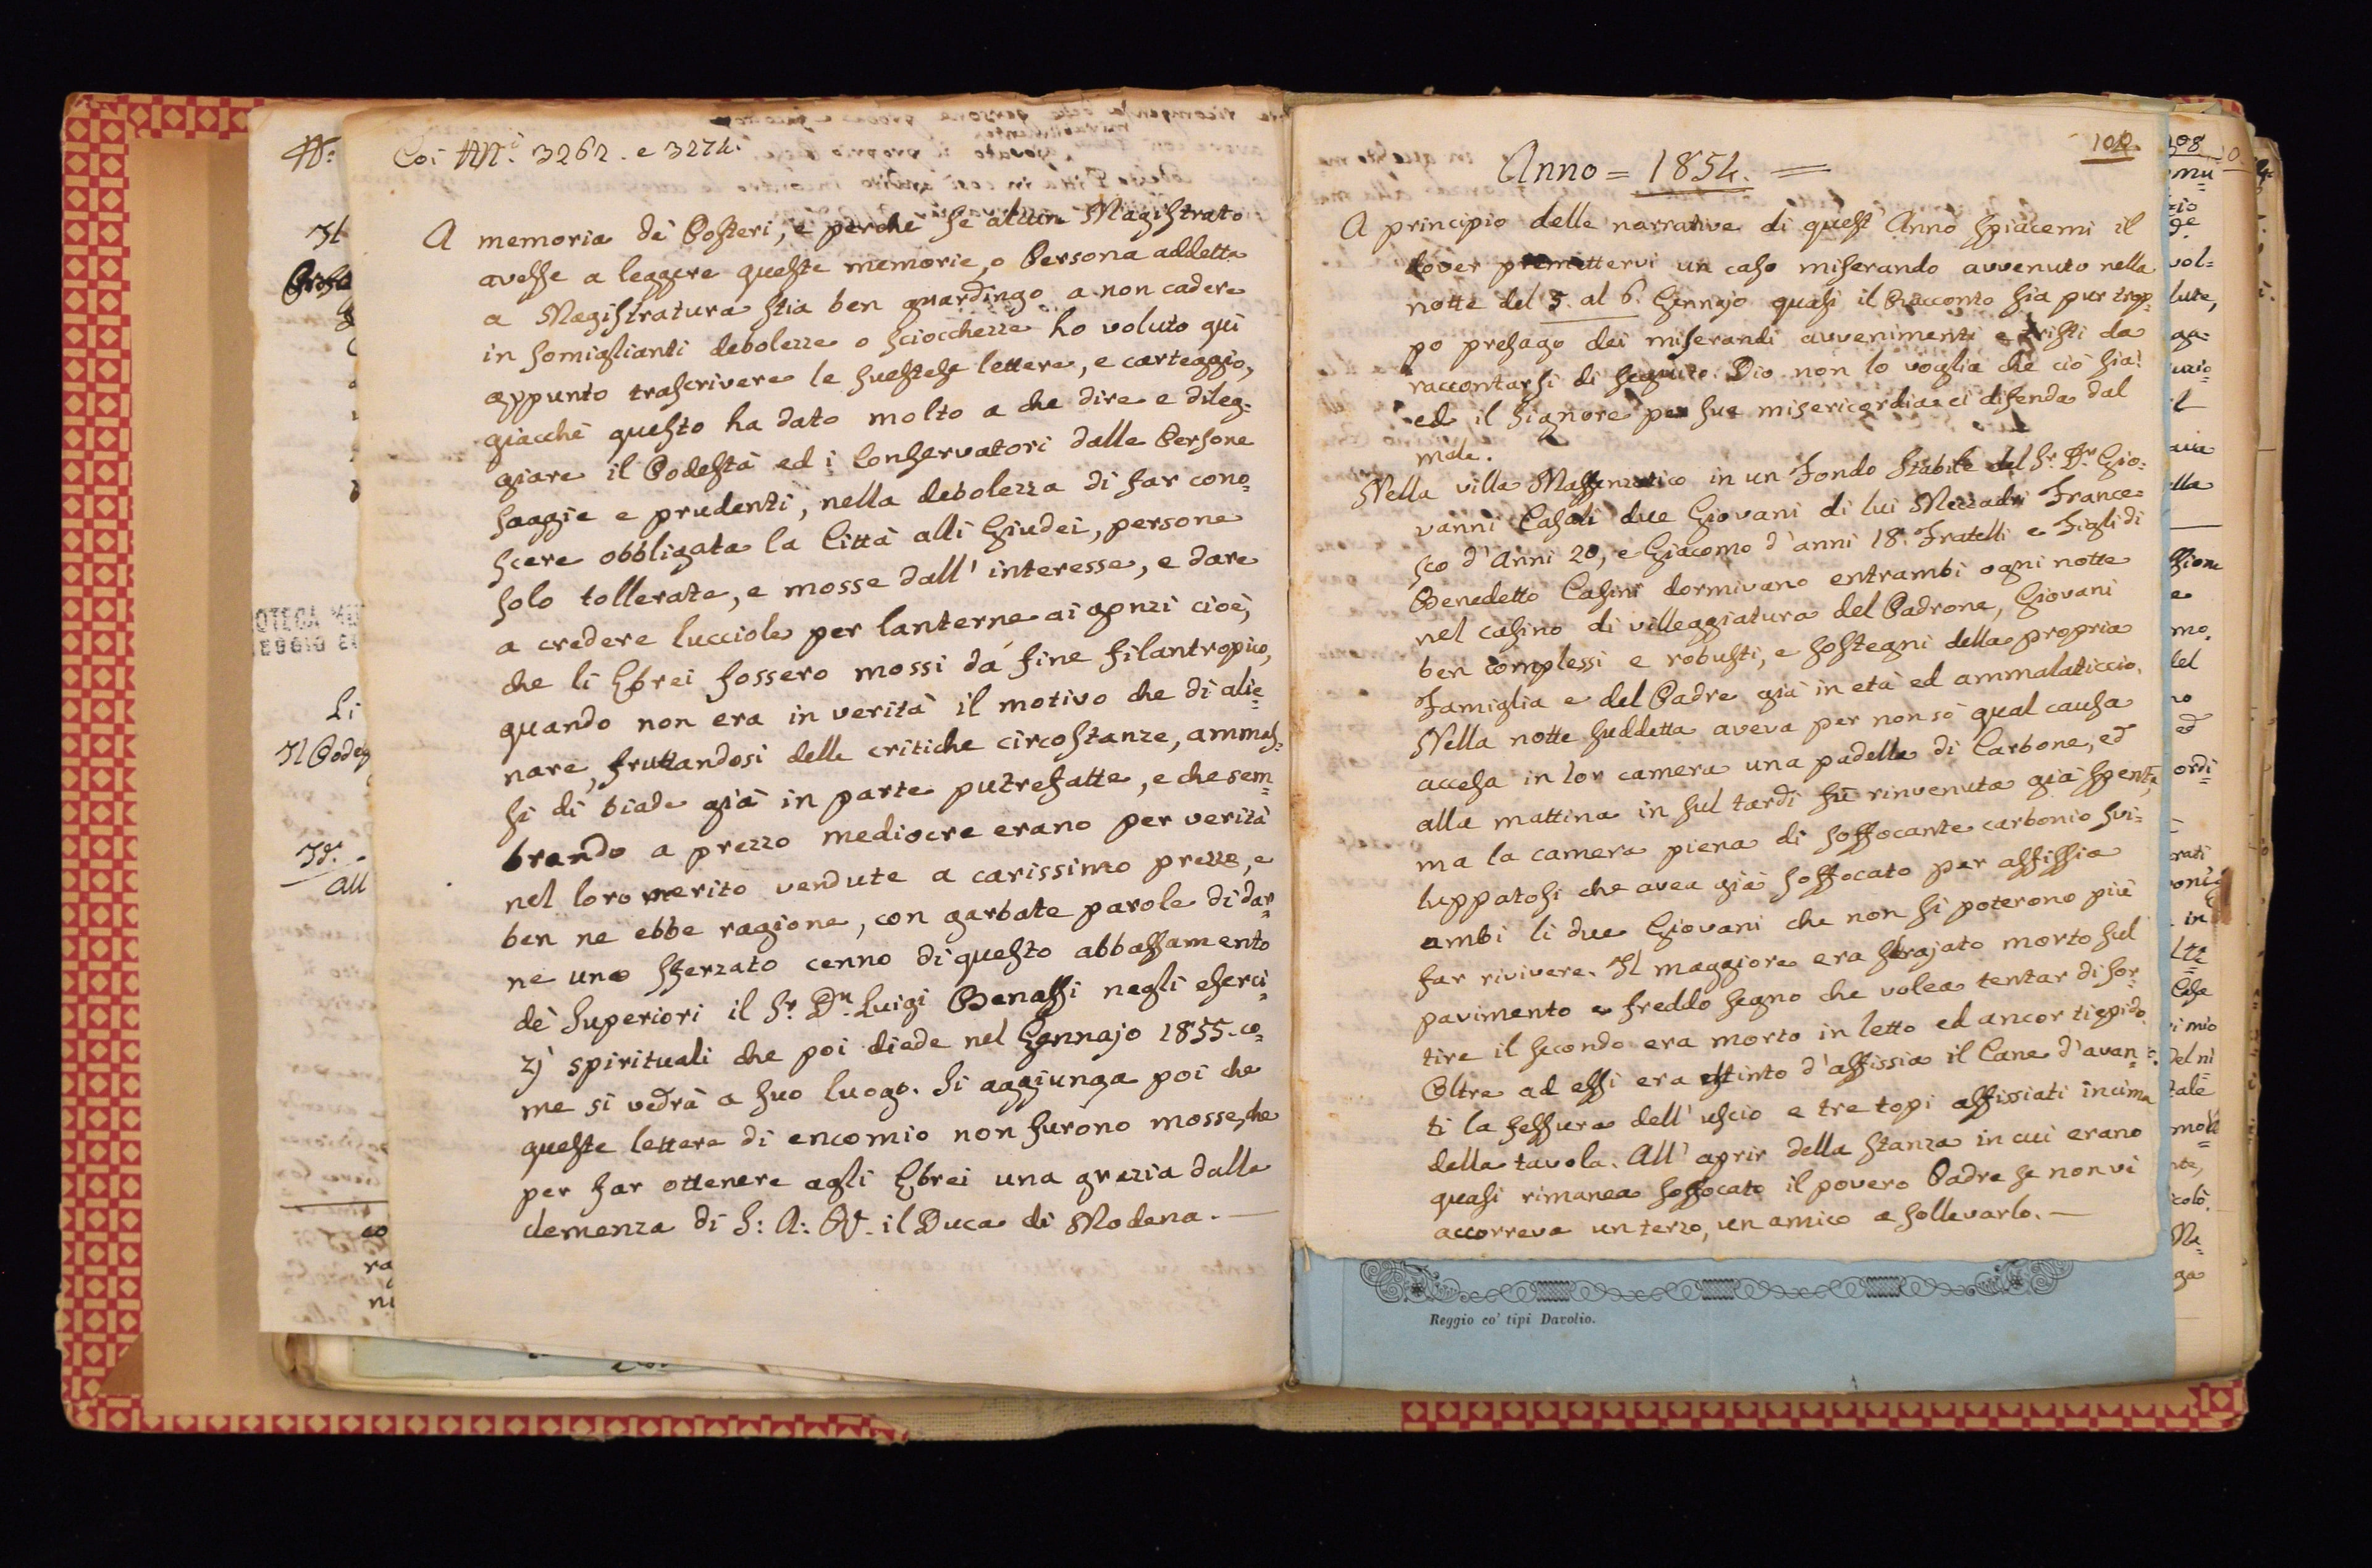 Coi NNi. 3262. e 3274.
A memoria dè Posteri, e perche se alcun Magistrato
avesse a leggere queste memorie, o Persona addetta
a Magistratura stia ben guardingo a non cadere
in somiglianti debolezze o sciocchezze ho voluto quì
appunto trascrivere le suestese lettere, e carteggio,
giacchè questo ha dato molto a che dire e dileg=
giare il Podestà ed i Conservatori dalle Persone
saagie e prudenti, nella debolezza di far cono=
scere obbligata la Città alli Giudei, persone
solo tollerate, e mosse dall' interesse, e dare
a credere lucciole per lanterne ai gonzi cioè,
che li Ebrei fossero mossi da fine filantropico,
quando non era in verità il motivo che di alie=
nare, fruttandosi delle critiche circostanze, ammas=
si di biade già in parte putrefatte, e che sem=
brando a prezzo mediocre erano per verità
nel loro merito vendute a carissimo prezzo, e
ben ne ebbe ragione, con garbate parole di dar=
ne uno sferzato cenno di questo abbassamento
dè Superiori il Sr. Dn. Luigi Benassi negli eserci=
zj spirituali che poi diede nel Gennajo 1855. co=
me si vedrà a suo luogo. Si aggiunga poi che
queste lettere di encomio non furono mosse, che
per far ottenere agli Ebrei una grazia dalla
clemenza di S: A: R. il Duca di Modena. —
102
Anno = 1854. =
A principio delle narrative di quest' Anno spiacemi il
dover premettervi un caso miserando avvenuto nella
notte del 5. al 6. Gennajo quasi il Racconto sia pur trop=
po presago dei miserandi avvenimenti e tristi da
raccontarsi di seguito. Dio non lo voglia che ciò sia!
ed il Signore per sua misericordia ci difenda dal
male.
Nella villa Massenzatico in un Fondo stabile del Sr. Dr. Gio=
vanni Casali due Giovani di lui Mezzadri France=
sco d' Anni 20, e Giacomo d' anni 18. Fratelli e Figli di
Benedetto Casini dormivano entrambi ogni notte
nel casino di villeggiatura del Padrone, Giovani
ben complessi e robusti, e sostegni della propria
Famiglia e del Padre già in età ed ammalaticcio.
Nella notte suddetta aveva per non sò qual causa
accesa in lor camera una padella di Carbone, ed
alla mattina in sul tardi fù rinvenuta già spenta,
ma la camera piena di soffocante carbonio svi=
luppatosi che avea già soffocato per assissia
ambi li due Giovani che non si poterono più
far rivivere. Il maggiore era strajato morto sul
pavimento e freddo segno che volea tentar di sor=
tire il secondo era morto in letto ed ancor tiepido.
Oltre ad essi era estinto d' assissia il Cane d' avan=
ti la fessura dell' uscio e tre topi assissiati in cima
della tavola. All' aprir della stanza in cui erano
quasi rimanea soffocato il povero Padre se non vi
accorreva un terzo, un amico a sollevarlo. —
Reggio co' tipi Davolio.